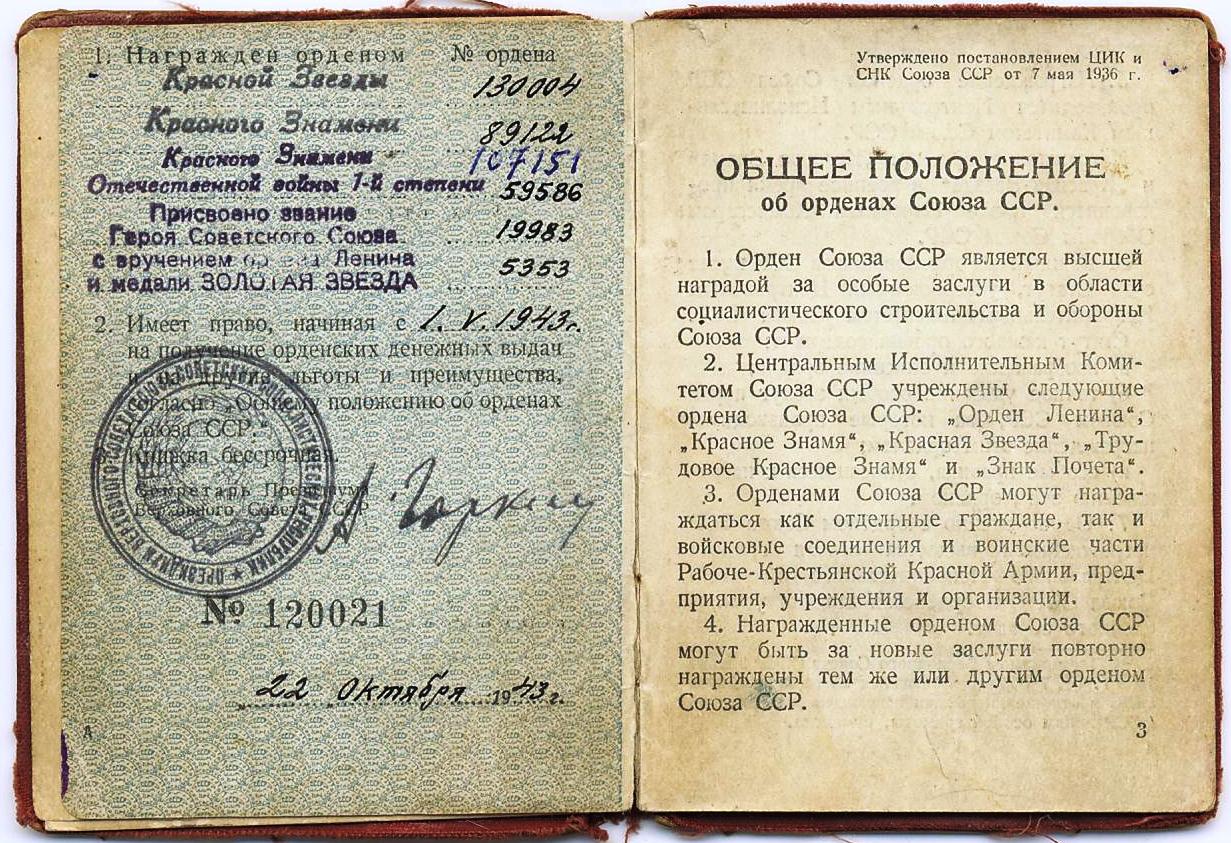 1. Награжден орденом № ордена
Красной Звезды 130004
Красного Знамени 89122
Красного Знамени 107151
Отечественной войны 1-й степени 59586
Присвоено звание
Героя Советского Союза 19983
с вручением Ленина
и медали ЗОЛОТАЯ ЗВЕЗДА 5353
2. Имеет право, начиная с 1.V.1943г.
на получение орденских денежных выдач
и на другие льготы и преимущества,
согласно „Общему положению об орденах
Союза ССР."
Книжка бессрочная.
Секретарь Президиума
Верховного Совета СССР
А. Горкин
№ 120021
„22 Октября 1943г.
А
Утверждено постановлением ЦИК и
СНК Союза ССР от 7 мая 1936 г.
ОБЩЕЕ ПОЛОЖЕНИЕ
об орденах Союза ССР.
1. Орден Союза ССР является высшей
наградой за особые заслуги в области
социалистического строительства и обороны
Союза ССР.
2. Центральным Исполнительным Коми-
тетом Союза ССР учреждены следующие
ордена Союза ССР: „Орден Ленина“,
„Красное Знамя“, „Красная Звезда“, „Тру-
довое Красное Знамя“ и „Знак Почета“.
3. Орденами Союза ССР могут награ-
ждаться как отдельные граждане, так и
войсковые соединения и воинские части
Рабоче-Крестьянской Красной Армии, пред-
приятия, учреждения и организации.
4. Награжденные орденом Союза ССР
могут быть за новые заслуги повторно
награждены тем же или другим орденом
Союза ССР.
3